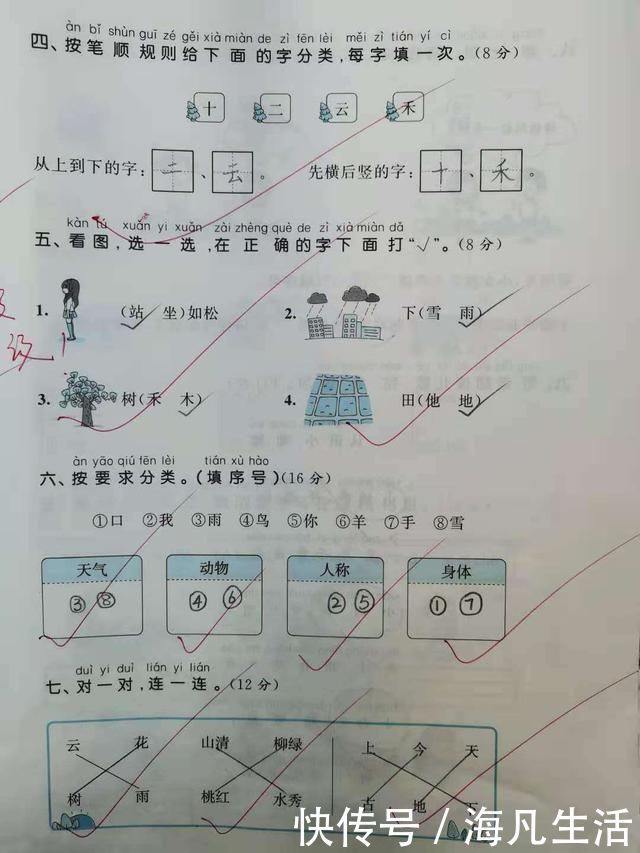 àn bǐ shùn guī zé gěi xià miàn de zì fēn lèi měi zì tián yí cì
四、按笔顺规则给下面的字分类,每字填一次。(8分)
十 二 云 禾
从上到下的字: 二、云。 先横后竖的字: 十、禾。
kàn tú xuǎn yi xuǎn zài zhèng què de zì xià miàn dǎ
五、看图,选一选,在正确的字下面打“√”。(8分)
1. (站 坐)如松 2. 下(雪 雨)
3. 树(禾 木) 4. 田(他 地)
àn yāo qiú fēn lèi tián xù hào
六、按要求分类。(填序号)(16分)
①口 ②我 ③雨 ④鸟 ⑤你 ⑥羊 ⑦手 ⑧雪
天气 动物 人称 身体
③ ⑧ ④ ⑥ ② ⑤ ① ⑦
duì yi duì lián yi lián
七、对一对,连一连。(12分)
云 花 山清 柳绿 上 今 天
树 雨 桃红 水秀 古 地 下
快传号/海凡生活